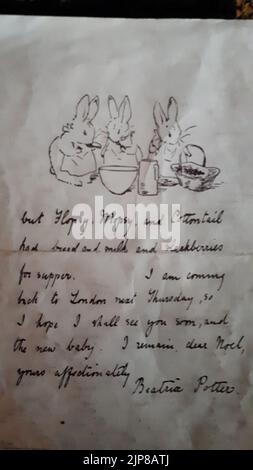 but Flopsy, Mopsy, and Cottontail
had bread and milk and blackberries
for supper. I am coming
back to London next Thursday, so
I hope I shall see you soon, and
the new baby. I remain, dear Noel,
yours affectionately
Beatrix Potter.
alamy
Image ID: 2JP8ATJ
www.alamy.com